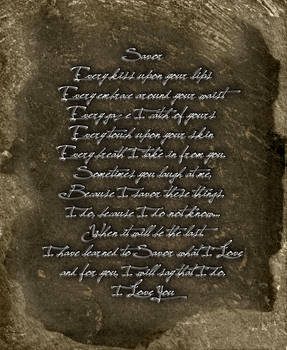 Savor
Every kiss upon your lips
Every embrace around your waist
Every gaze I catch of yours
Every touch upon your skin
Every breath I take in from you.
Sometimes you laugh at me,
Because I savor these things,
I do, because I do not know...
When it will be the last
I have learned to Savor what I Love
and for you, I will say that I do,
I Love You